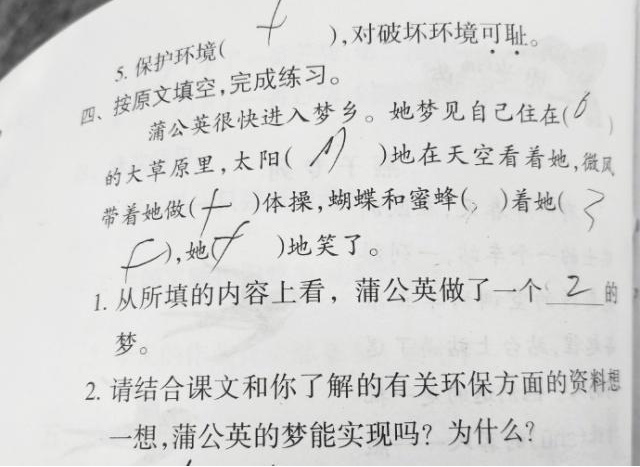 5. 保护环境( ),对破坏环境可耻。
四、按原文填空,完成练习。
蒲公英很快进入梦乡。她梦见自己住在( )
的大草原里,太阳( )地在天空看着她,微风
带着她做( )体操,蝴蝶和蜜蜂( )着她(
),她( )地笑了。
1. 从所填的内容上看,蒲公英做了一个 2 的
梦。
2. 请结合课文和你了解的有关环保方面的资料想
一想,蒲公英的梦能实现吗?为什么?